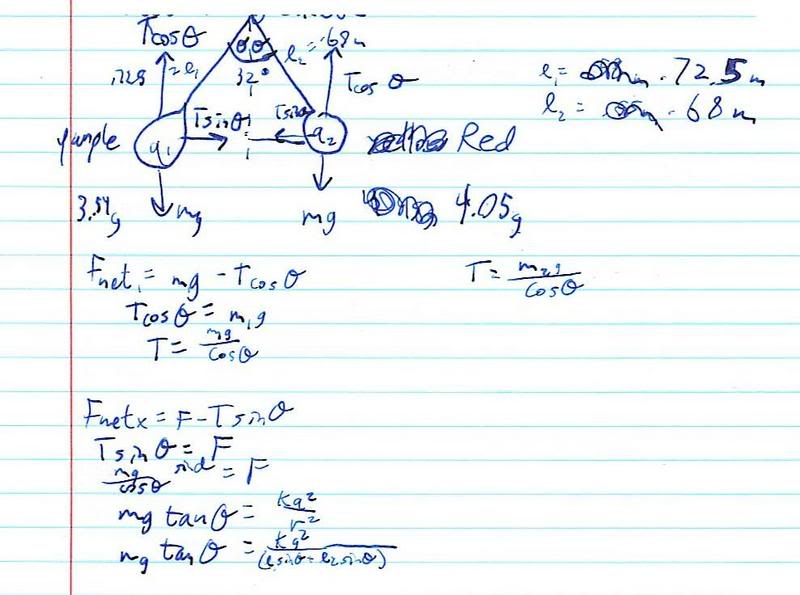 Tcosθ
θ θ
l₂ = .68m
.725 = l₁
32°
Tcosθ
l₁ = .72.5m
l₂ = .68m
Tsinθ
Tsinθ
purple
q₁
q₂
Red
3.54g
mg
mg
4.05g
Fnet₁ = mg - Tcosθ
T = m₂g/cosθ
Tcosθ = m₁g
T = mg/cosθ
Fnetx = F - Tsinθ
Tsinθ = F
mg/cosθ sinθ = F
mg tanθ = kq²/r²
mg tanθ = kq²/(l₁sinθ + l₂sinθ)